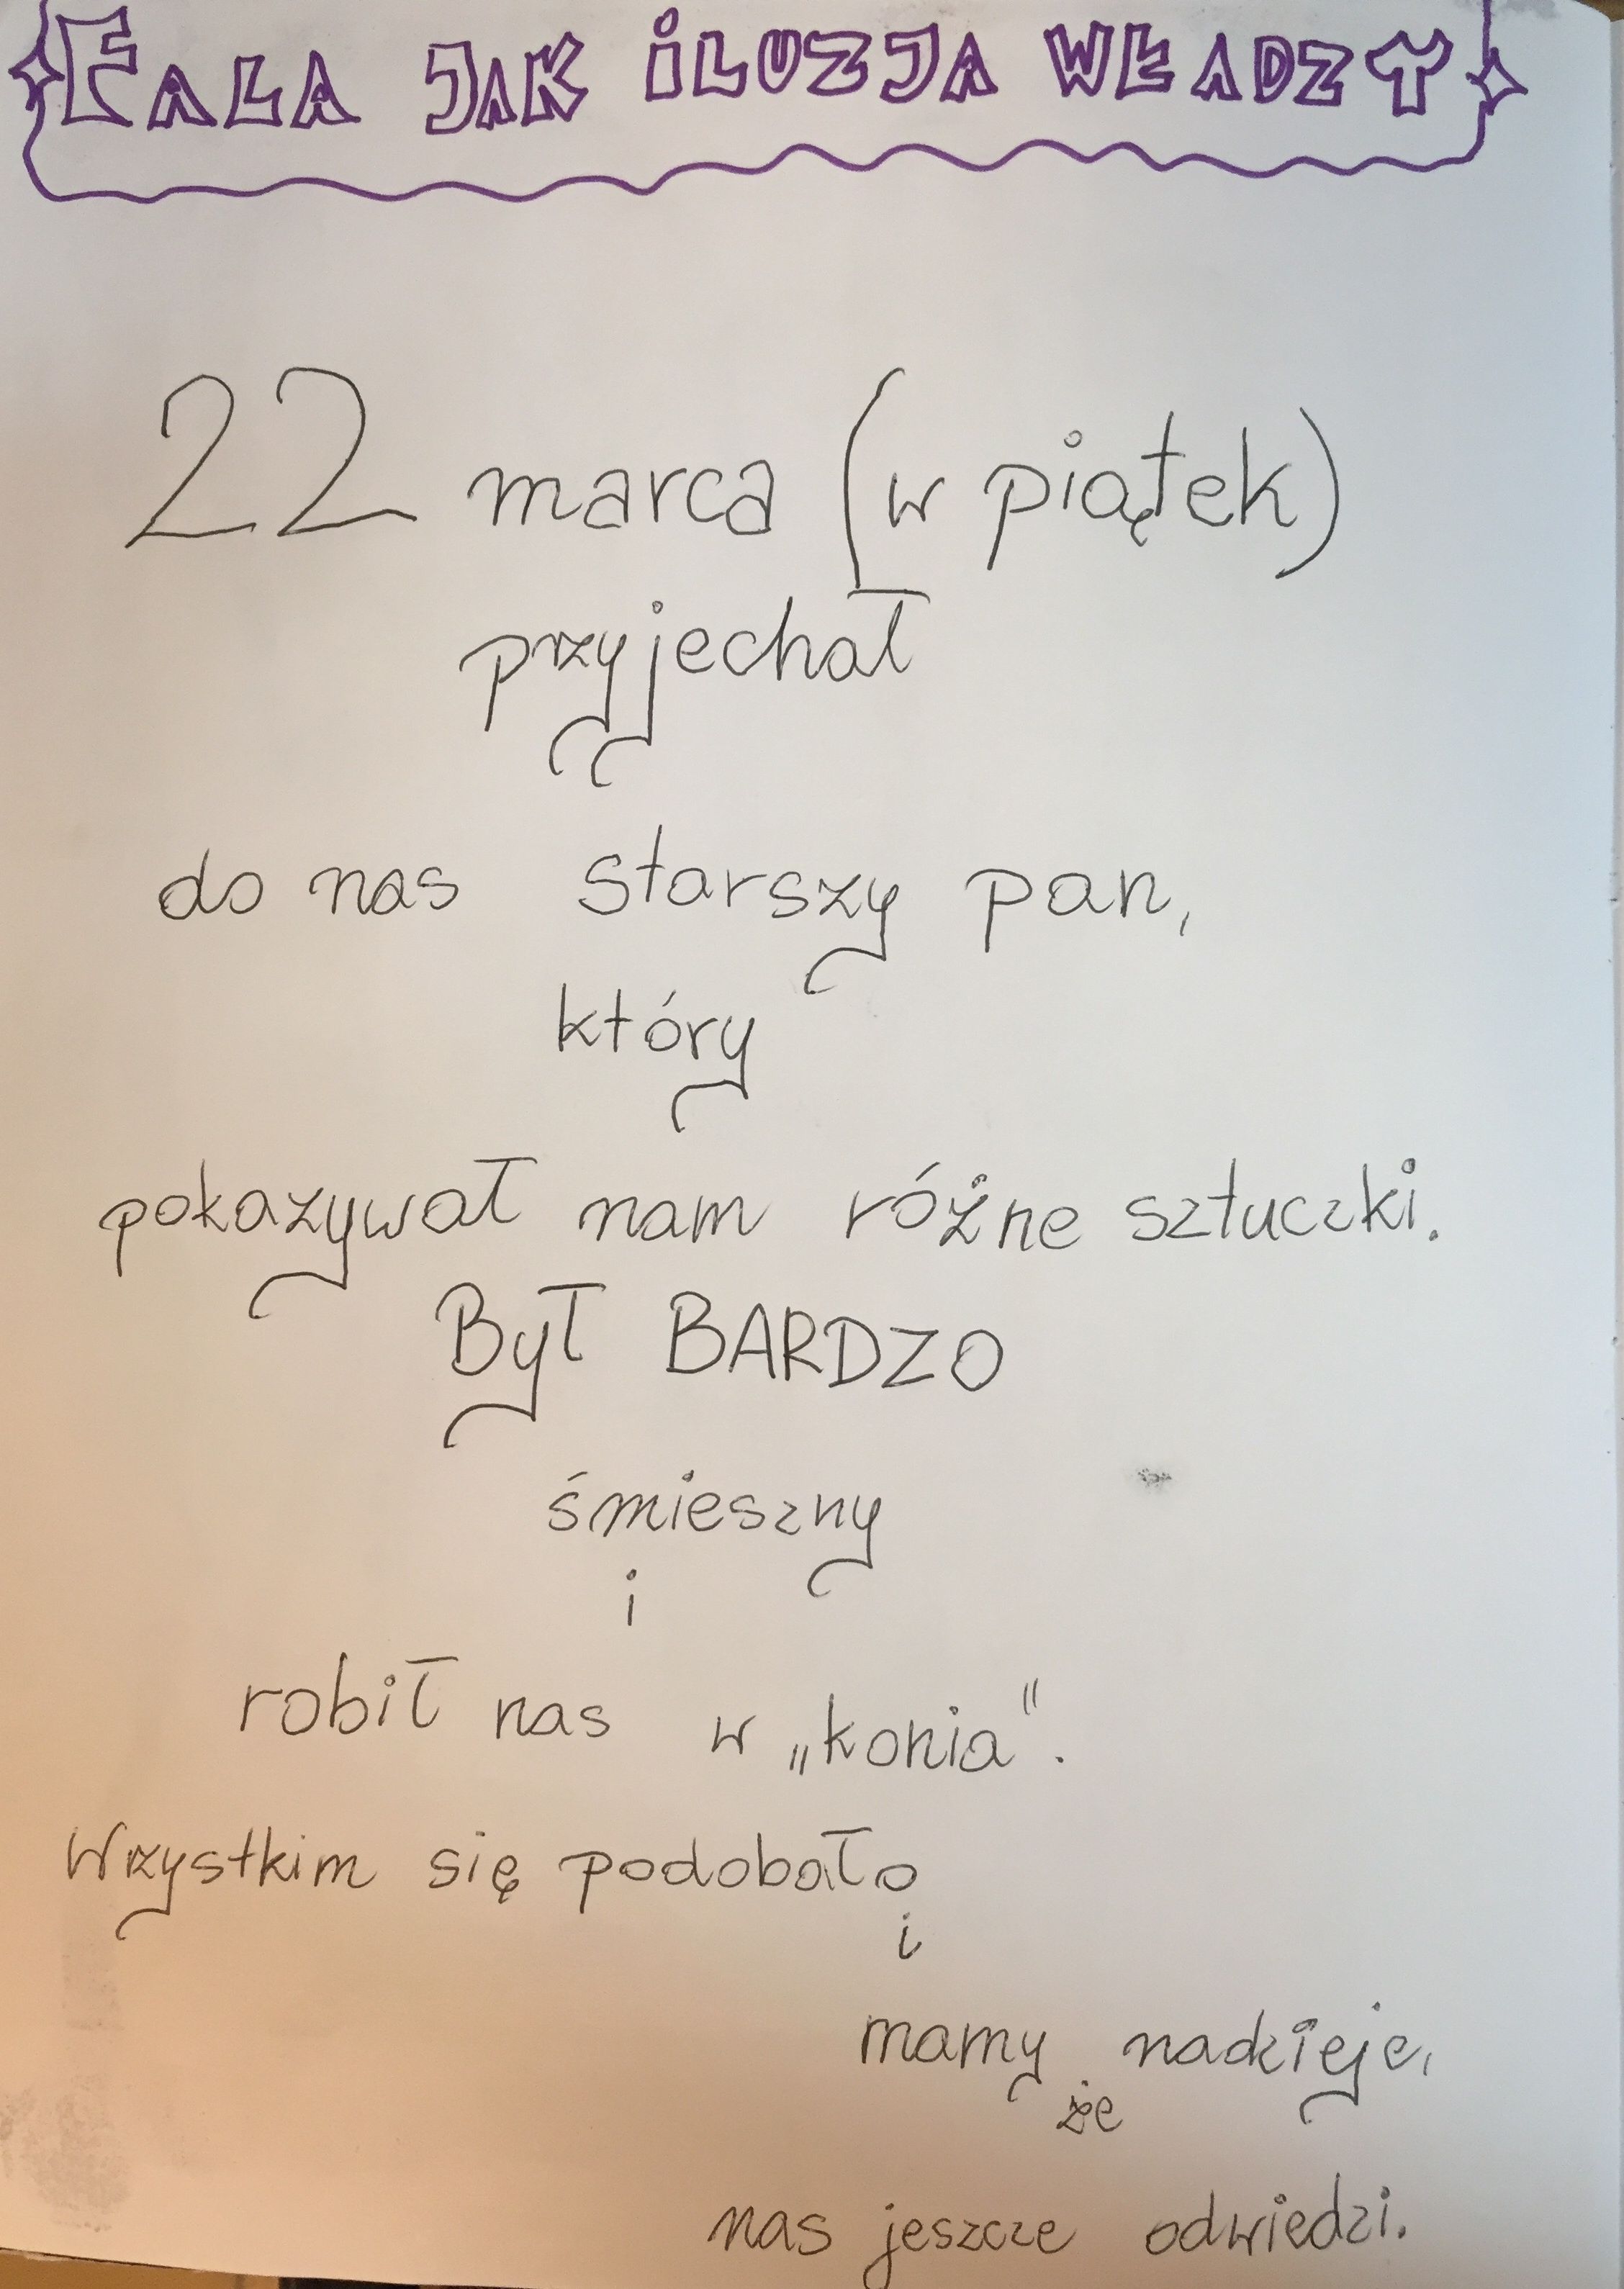 FALA JAK iLUZJA WŁADZY
22 marca (w piątek)
przyjechał
do nas starszy pan,
który
pokazywał nam różne sztuczki.
Był BARDZO
śmieszny
i
robił nas w „konia”.
Wrzystkim się podobało
i
mamy nadzieje,
że
nas jeszcze odwiedzi.